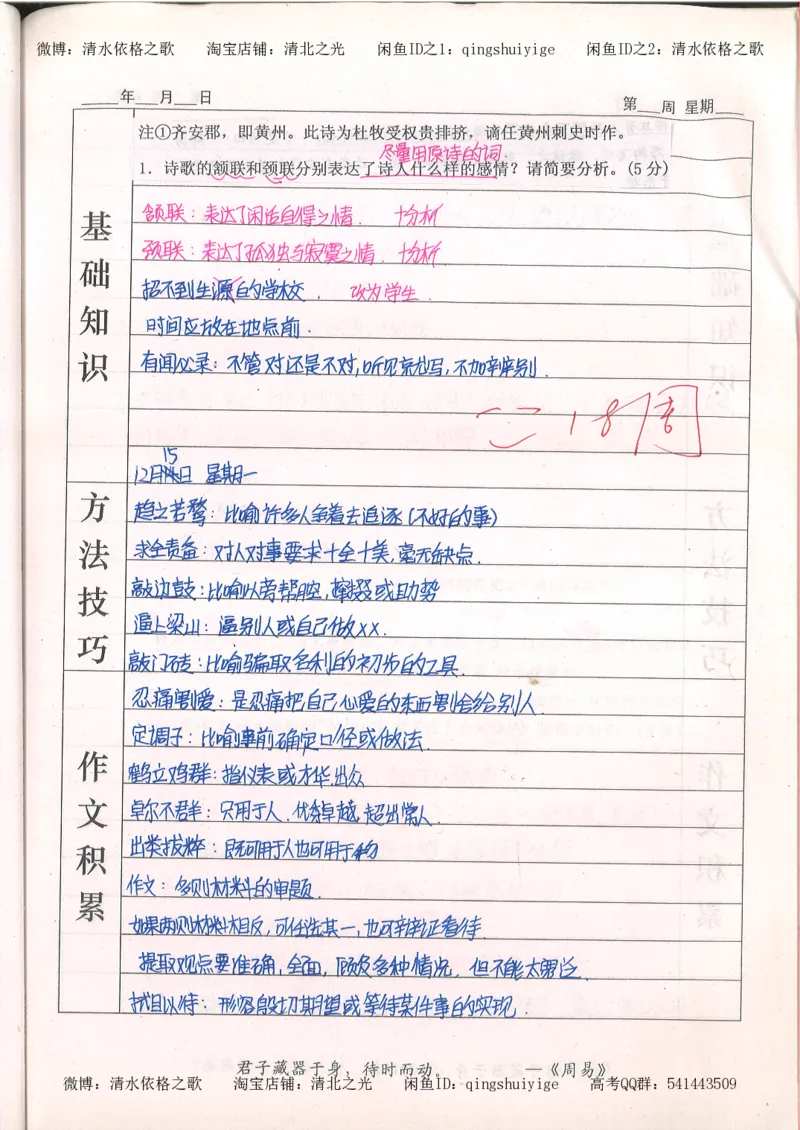 微博：清水依格之歌 淘宝店铺：清北之光 闲鱼ID之1：qingshuiyige 闲鱼ID之2：清水依格之歌
____年___月___日 第___周 星期___
注①齐安郡，即黄州。此诗为杜牧受权贵排挤，谪任黄州刺史时作。
尽量用原诗的词
1．诗歌的颔联和颈联分别表达了诗人什么样的感情？请简要分析。(5分)
基础知识
颔联：表达了闲适自得之情． +分析
颈联：表达了孤独与寂寞之情． +分析
招不到生源的学校． 改为学生．
时间应放在地点前．
有闻必录：不管对还是不对,听见就写,不加辨别．
18周
15
12月日 星期一
方法技巧
趋之若鹜：比喻许多人争着去追逐(不好的事)
求全责备：对人对事要求十全十美,毫无缺点．
敲边鼓：比喻从旁帮腔,撺掇或助势
逼上梁山：逼别人或自己做××．
敲门砖：比喻骗取名利的初步的工具．
作文积累
忍痛割爱：是忍痛把自己心爱的东西割舍给别人．
定调子：比喻事前确定口径或做法．
鹤立鸡群：指仪表或才华出众
卓尔不群：只用于人．优秀卓越,超出常人．
出类拔粹：既可用于人也可用于物
作文：多则材料的审题．
如果两则材料相反,可任选其一,也可辩证看待．
提取观点要准确,全面,顾及多种情况．但不能太宽泛．
拭目以待：形容殷切期望或等待某件事的实现．
君子藏器于身，待时而动。 ——《周易》
微博：清水依格之歌 淘宝店铺：清北之光 闲鱼ID：qingshuiyige 高考QQ群：541443509